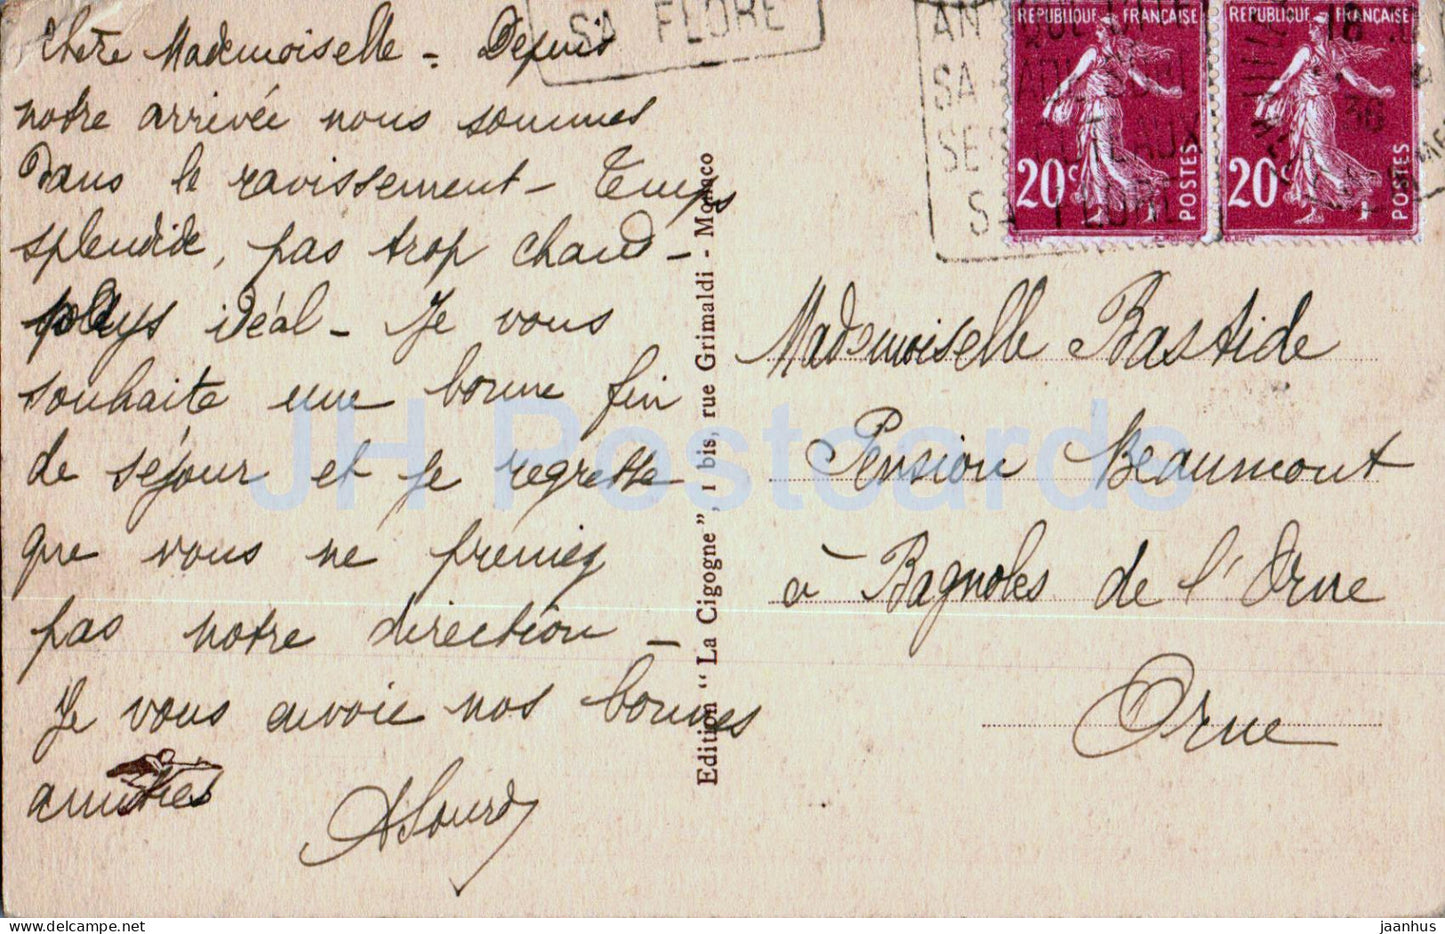 Chère Mademoiselle - Depuis
notre arrivée nous sommes
dans le ravissement - Temps
splendide, pas trop chaud -
pays idéal - Je vous
souhaite une bonne fin
de séjour et je regrette
que vous ne preniez
pas notre direction -
Je vous envoie nos bonnes
amitiés
SA FLORE
AN
SA
SES
SA FLORE
18
36
REPUBLIQUE FRANÇAISE
20c POSTES
REPUBLIQUE FRANÇAISE
20c POSTES
Edition “La Cigogne”, 1 bis, rue Grimaldi - Monaco
Mademoiselle Bastide
Pension Beaumont
à Bagnoles de l'Orne
Orne
JH Postcards
jaanhus